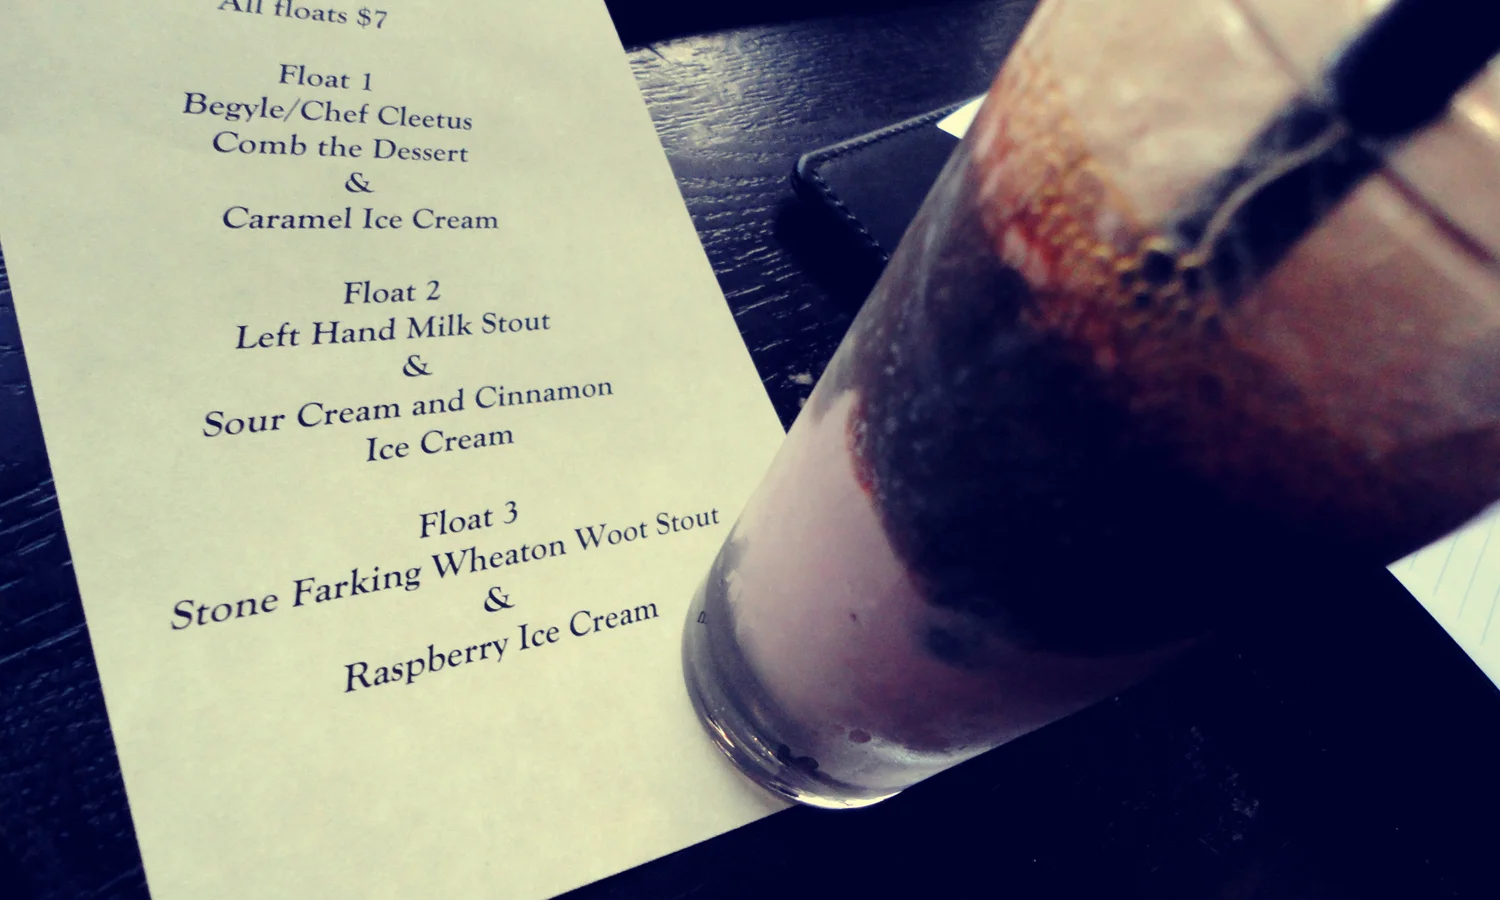 All floats $7
Float 1
Begyle/Chef Cleetus
Comb the Dessert
&
Caramel Ice Cream
Float 2
Left Hand Milk Stout
&
Sour Cream and Cinnamon
Ice Cream
Float 3
Stone Farking Wheaton Woot Stout
&
Raspberry Ice Cream